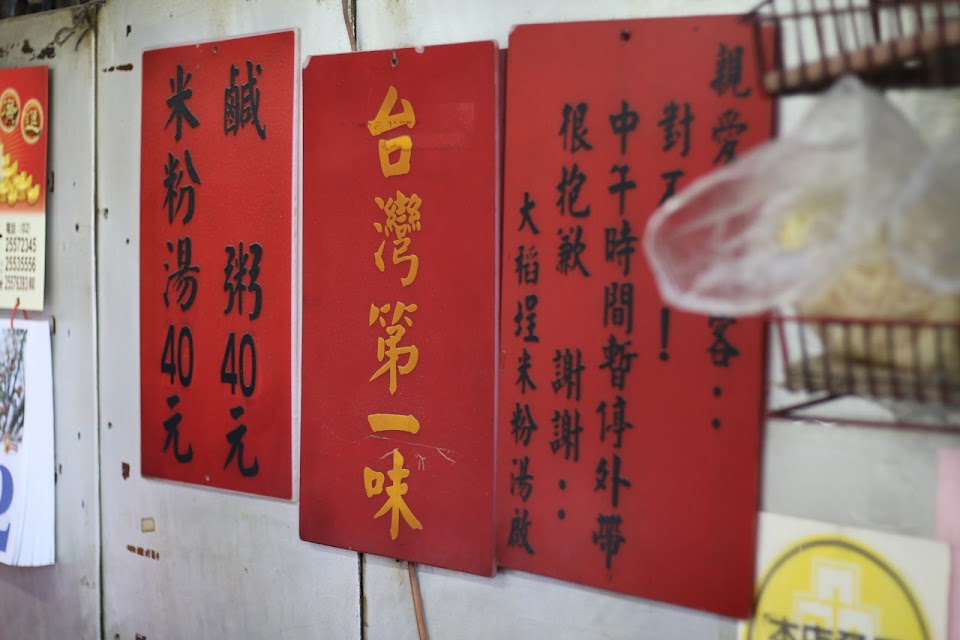 鹹粥40元
米粉湯40元
台灣第一味
親愛
客：
對不
！
中午時間暫停外帶
很抱歉 謝謝：
大稻埕米粉湯啟
電話：(02)
25572345
25535556